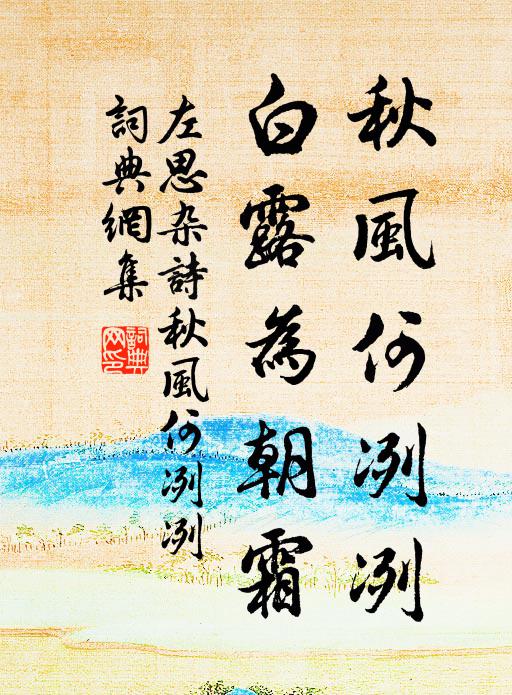 秋風何冽冽
白露為朝霜
左思杂詩秋風何冽冽
詞典網集
詞典
網印